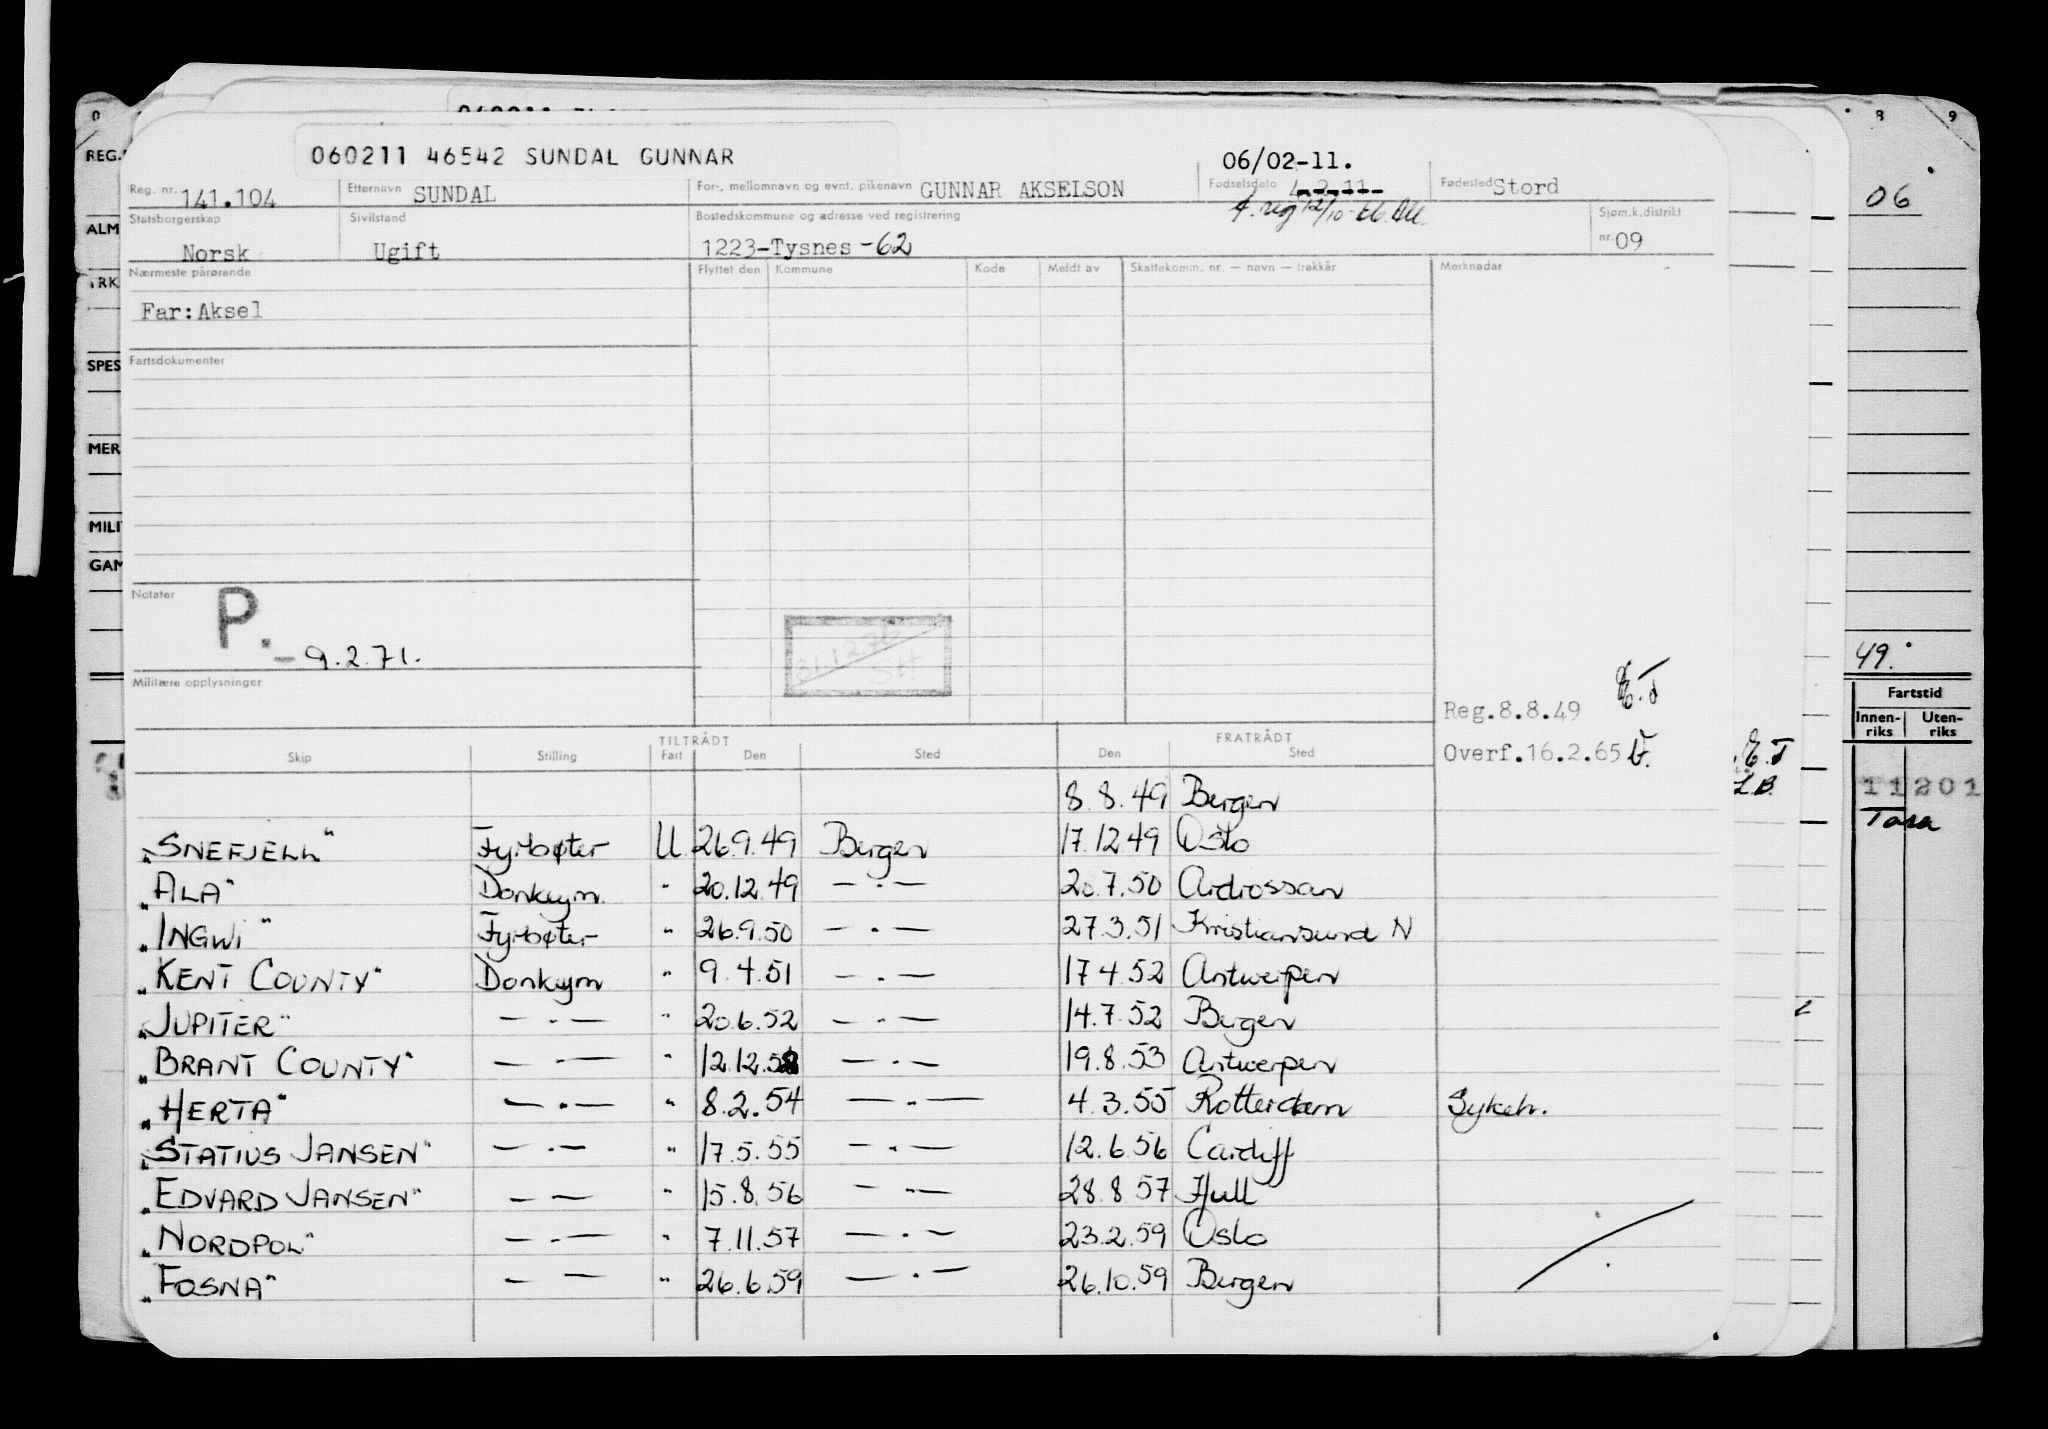 060211 46542 SUNDAL GUNNAR
06/02-11.
Reg. nr. 141.104 Etternavn SUNDAL For-, mellomnavn og evnt. pikenavn GUNNAR AKSELSON Fødselsdato Fødested Stord
f. reg 12/10-66
Statsborgerskap Norsk Sivilstand Ugift Bostedskommune og adresse ved registrering 1223-Tysnes -62 Sjøm.k.distrikt nr. 09
Nærmeste pårørende Flyttet den Kommune Kode Meldt av Skattekomm. nr. — navn — trekkår Merknader
Far: Aksel
Fartsdokumenter
Notater
P. - 9.2.71.
31.12.76
SH
Militære opplysninger
Reg. 8.8.49 E.T
Overf. 16.2.65
TILTRÅDT FRATRÅDT
Skip Stilling Fart Den Sted Den Sted
8.8.49 Bergen
"SNEFJELL" Fyrbøter U 26.9.49 Bergen 17.12.49 Oslo
"ALA" Donkeym. " 20.12.49 — . — 20.7.50 Ardrossan
"INGWI" Fyrbøter " 26.9.50 — . — 27.3.51 Kristiansund N
"KENT COUNTY" Donkeym " 9.4.51 — . — 17.4.52 Antwerpen
"JUPITER" — . — " 20.6.52 — . — 14.7.52 Bergen
"BRANT COUNTY" — . — " 12.12.52 — . — 19.8.53 Antwerpen
"HERTA" — . — " 8.2.54 — . — 4.3.55 Rotterdam Sykeh.
"STATIUS JANSEN" — . — " 17.5.55 — . — 12.6.56 Cardiff
"EDVARD JANSEN" — — " 15.8.56 — . — 28.8.57 Hull
"NORDPOL" — . — " 7.11.57 — . — 23.2.59 Oslo
"FOSNA" — — " 26.6.59 — . — 26.10.59 Bergen
0
REG.
ALM
SPES
MER
MILI
GAM
8 9
06
49.
Fartstid
Innen-riks Uten-riks
E.T
L.B.
11201
Tara